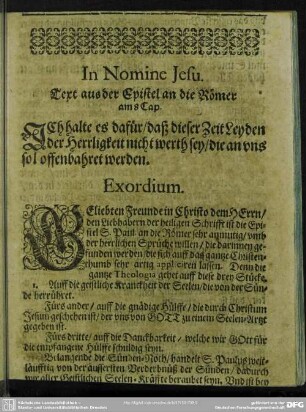 In Nomine Jesu.
Text aus der Epistel an die Römer
am 8 Cap.
ICh halte es dafür/ daß dieser Zeit Leyden
der Herrligkeit nicht werth sey/ die an vns
sol offenbahret werden.
Exordium.
GEliebten Freunde in Christo dem HErrn/
den Liebhabern der heiligen Schrifft ist die Epi-
stel S. Paul an die Römer sehr anmutig/ vmb
der herrlichen Sprüche willen/ die darinnen ge-
funden werden/ die sich auff daß gantze Christen-
thumb sehr artig appliciren lassen. Denn die
gantze Theologia gehet auff diese drey Stücke.
1. Auff die geistliche Kranckheit der Seelen/ die von der Sün-
de herrühret.
Fürs ander/ auff die gnädige Hülffe/ die durch Christum
Jesum geschehen ist/ der vns von GOTT zu einem Seelen-Artzt
gegeben ist.
Fürs dritte/ auff die Danckbarkeit/ welche wir GOtt für
die empfangene Hülffe schuldig seyn.
Belangende die Sünden-Noth/ handelt S. Paulus weit-
läufftig von der äussersten Verderbnüß der Sünden/ dadurch
wir aller Geistlichen Seelen-Kräffte beraubet seyn. Vnd ist bey